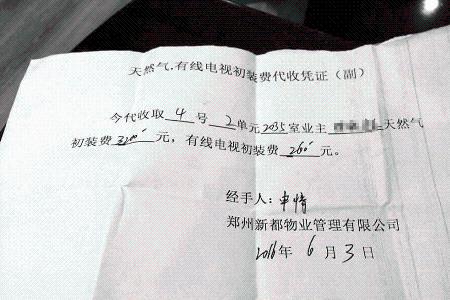 天然气,有线电视初装费代收凭证(副)
今代收取 4 号 2 单元 2035 室业主 天然气
初装费 3200 元,有线电视初装费 260 元。
经手人:申情
郑州新都物业管理有限公司
2016年 6 月 3 日